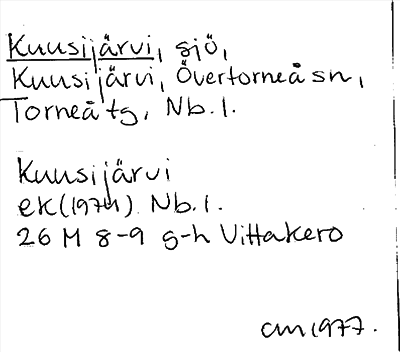 Kuusijärvi, sjö,
Kuusijärvi, Övertorneå sn,
Torneå tg, Nb.l.
Kuusijärvi
ek(1974) Nb.l.
26 M 8-9 g-h Vittakero
CM 1977.